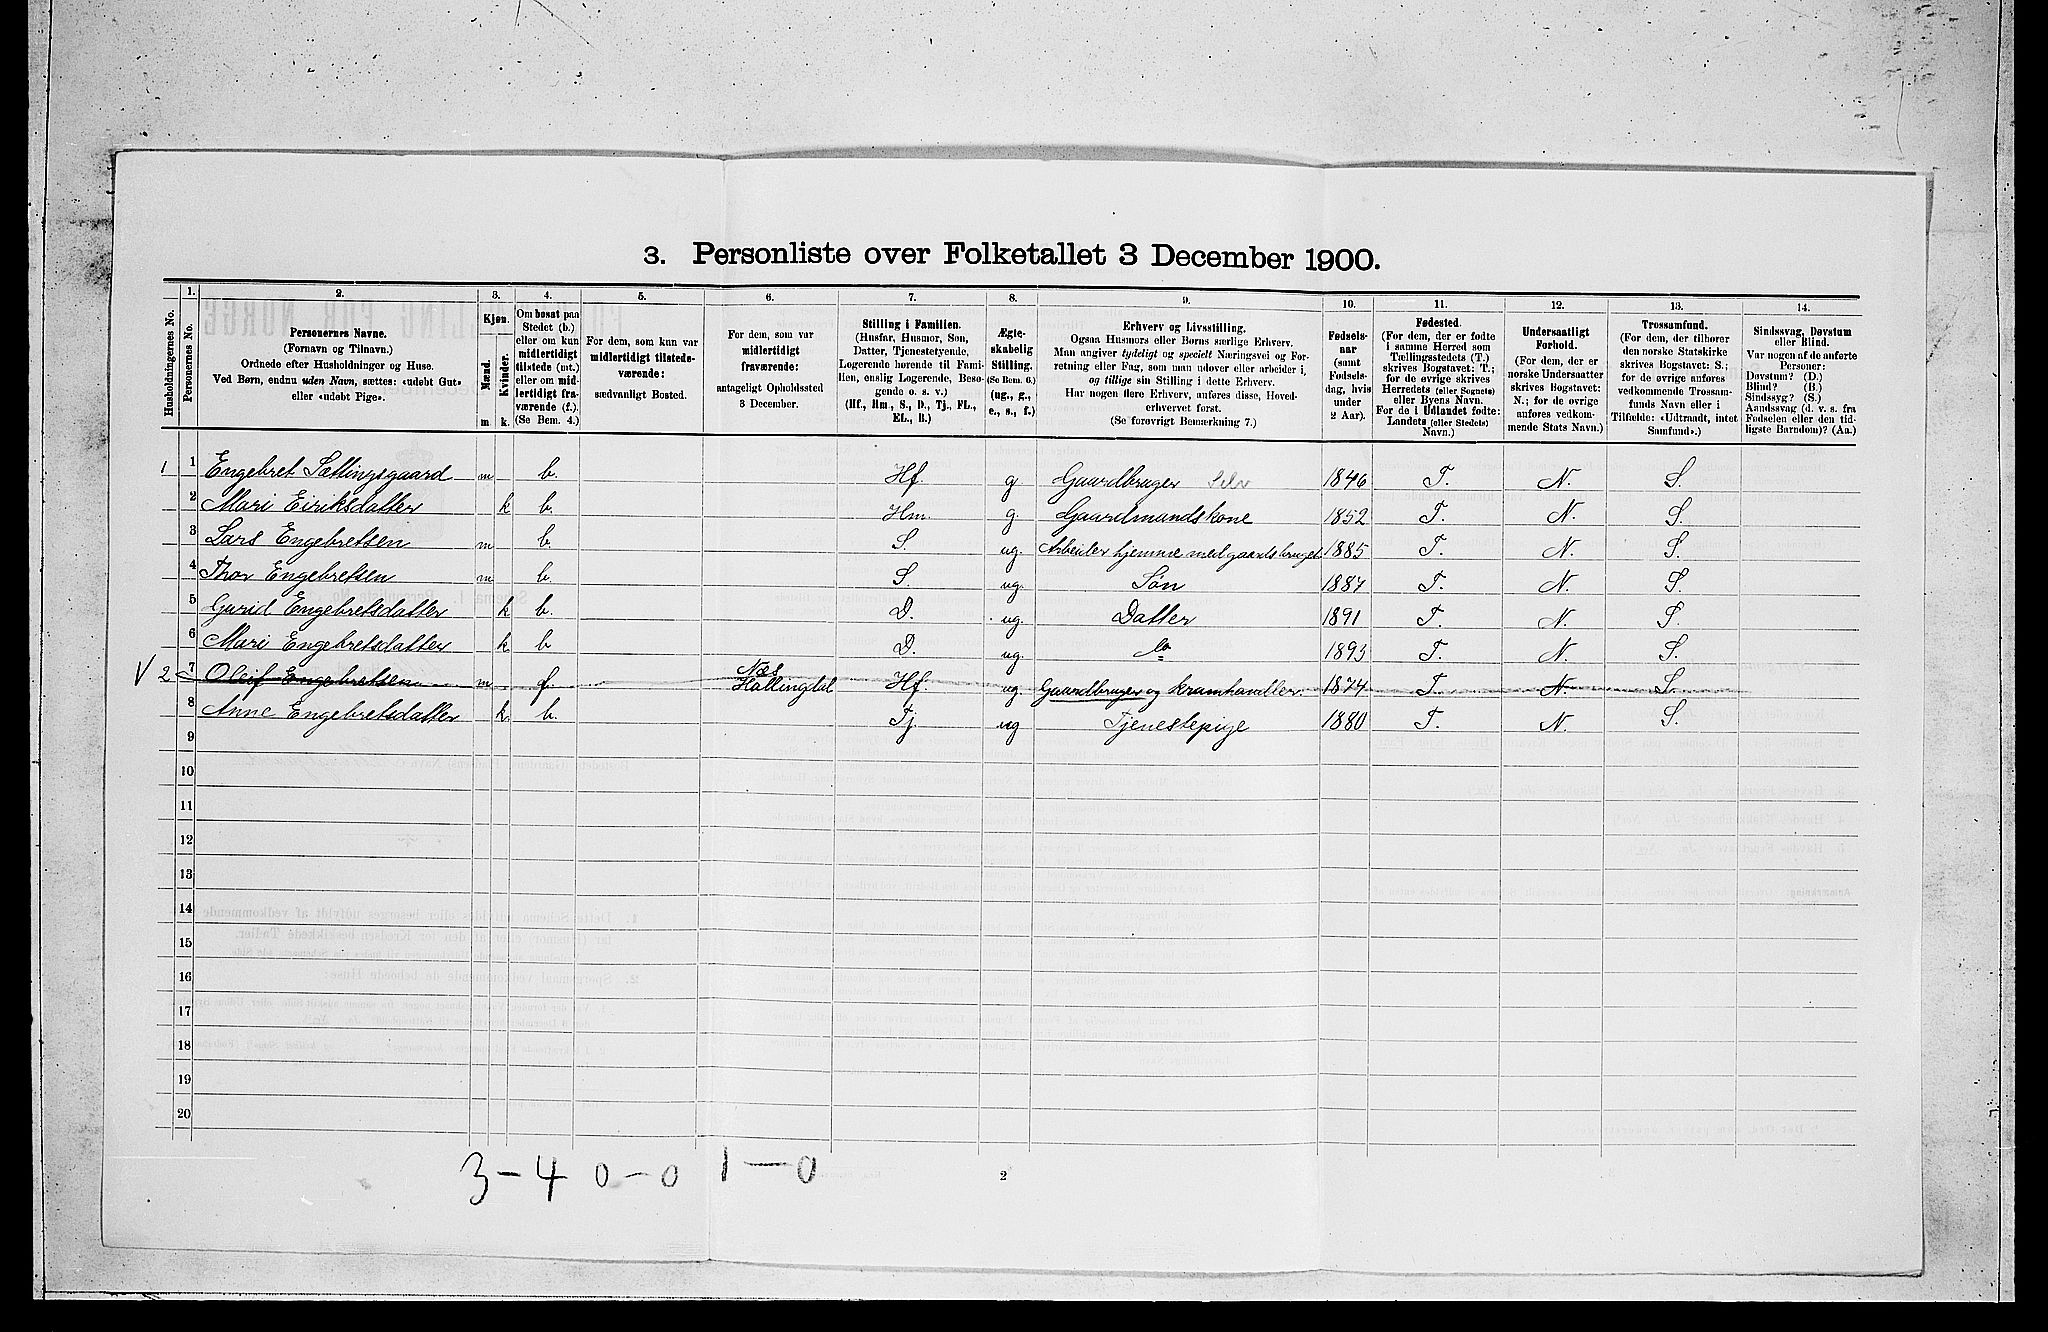 3. Personliste over Folketallet 3 December 1900.
1. 2. 3. 4. 5. 6. 7. 8. 9. 10. 11. 12. 13. 14.
Husholdningernes No.
Personernes No.
Personernes Navne.
(Fornavn og Tilnavn.)
Ordnede efter Husholdninger og Huse.
Ved Børn, endnu uden Navn, sættes: «udøbt Gut»
eller «udøbt Pige».
Kjøn.
Mænd.
Kvinder.
m k.
Om bosat paa
Stedet (b.)
eller om kun
midlertidigt
tilstede (mt.)
eller om mid-
lertidigt fra-
værende (f.)
(Se Bem. 4.)
For dem, som kun var
midlertidigt tilstede-
værende:
sædvanligt Bosted.
For dem, som var
midlertidigt
fraværende:
antageligt Opholdssted
3 December.
Stilling i Familien.
(Husfar, Husmor, Søn,
Datter, Tjenestetyende,
Logerende hørende til Fami-
lien, enslig Logerende, Besø-
gende o. s. v.)
(Hf., Hm., S., D., Tj., FL.,
EL., B.)
Ægte-
skabelig
Stilling.
(Se Bem. 6.)
(ug., g.,
e., s., f.)
Erhverv og Livsstilling.
Ogsaa Husmors eller Børns særlige Erhverv.
Man angiver tydeligt og specielt Næringsvei og For-
retning eller Fag, som man udøver eller arbeider i,
og tillige sin Stilling i dette Erhverv.
Har nogen flere Erhverv, anføres disse, Hoved-
erhvervet først.
(Se forøvrigt Bemærkning 7.)
Fødsels-
aar
(samt
Fødsels-
dag, hvis
under
2 Aar).
Fødested.
(For dem, der er fødte
i samme Herred som
Tællingsstedets (T.)
skrives Bogstavet: T.;
for de øvrige skrives
Herredets (eller Sognets)
eller Byens Navn.
For de i Udlandet fødte:
Landets (eller Stedets)
Navn.)
Undersaatligt
Forhold.
(For dem, der er
norske Undersaatter
skrives Bogstavet:
N.; for de øvrige
anføres vedkom-
mende Stats Navn.)
Trossamfund.
(For dem, der tilhører
den norske Statskirke
skrives Bogstavet: S.;
for de øvrige anføres
vedkommende Trossam-
funds Navn eller i
Tilfælde: «Udtraadt, intet
Samfund».)
Sindssvag, Døvstum
eller Blind.
Var nogen af de anførte
Personer:
Døvstum? (D.)
Blind? (B.)
Sindssyg? (S.)
Aandssvag (d. v. s. fra
Fødselen eller den tid-
ligste Barndom)? (Aa.)
1 1 Engebret Sættingsgaard m b. Hf. g. Gaardbruger Selv 1846 T. N. S.
2 Mari Eiriksdatter k b. Hm. g. Gaardmandskone 1852 T. N. S.
3 Lars Engebretsen m b. S. ug. Arbeider hjemme med gaardsbruget 1885 T. N. S.
4 Thor Engebretsen m b. S. ug. Søn 1887 T. N. S.
5 Gurid Engebretsdatter k b. D. ug. Datter 1891 T. N. S.
6 Mari Engebretsdatter k b D. ug. do 1893 T. N. S.
V 2 7 Oleif Engebretsen m f. Næs Hallingdal Hf. ug Gaardbruger og kramhandler 1874 T N. S.
8 Anne Engebretsdatter k b. Tj. ug Tjenestepige 1880 T. N. S.
9
10
11
12
13
14
15
16
17
18
19
20
3 - 4 0 - 0 1 - 0
2